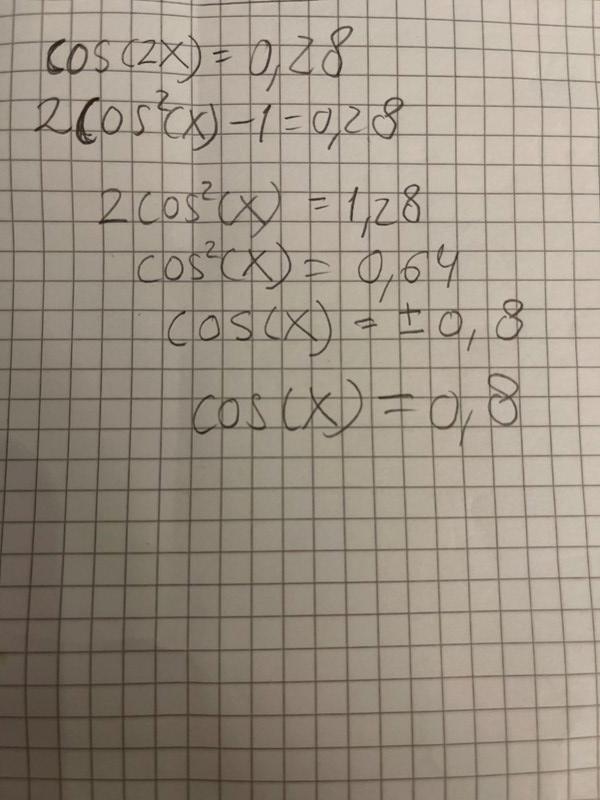 cos(2x) = 0,28
2cos²(x) - 1 = 0,28
2cos²(x) = 1,28
cos²(x) = 0,64
cos(x) = ±0,8
cos(x) = 0,8